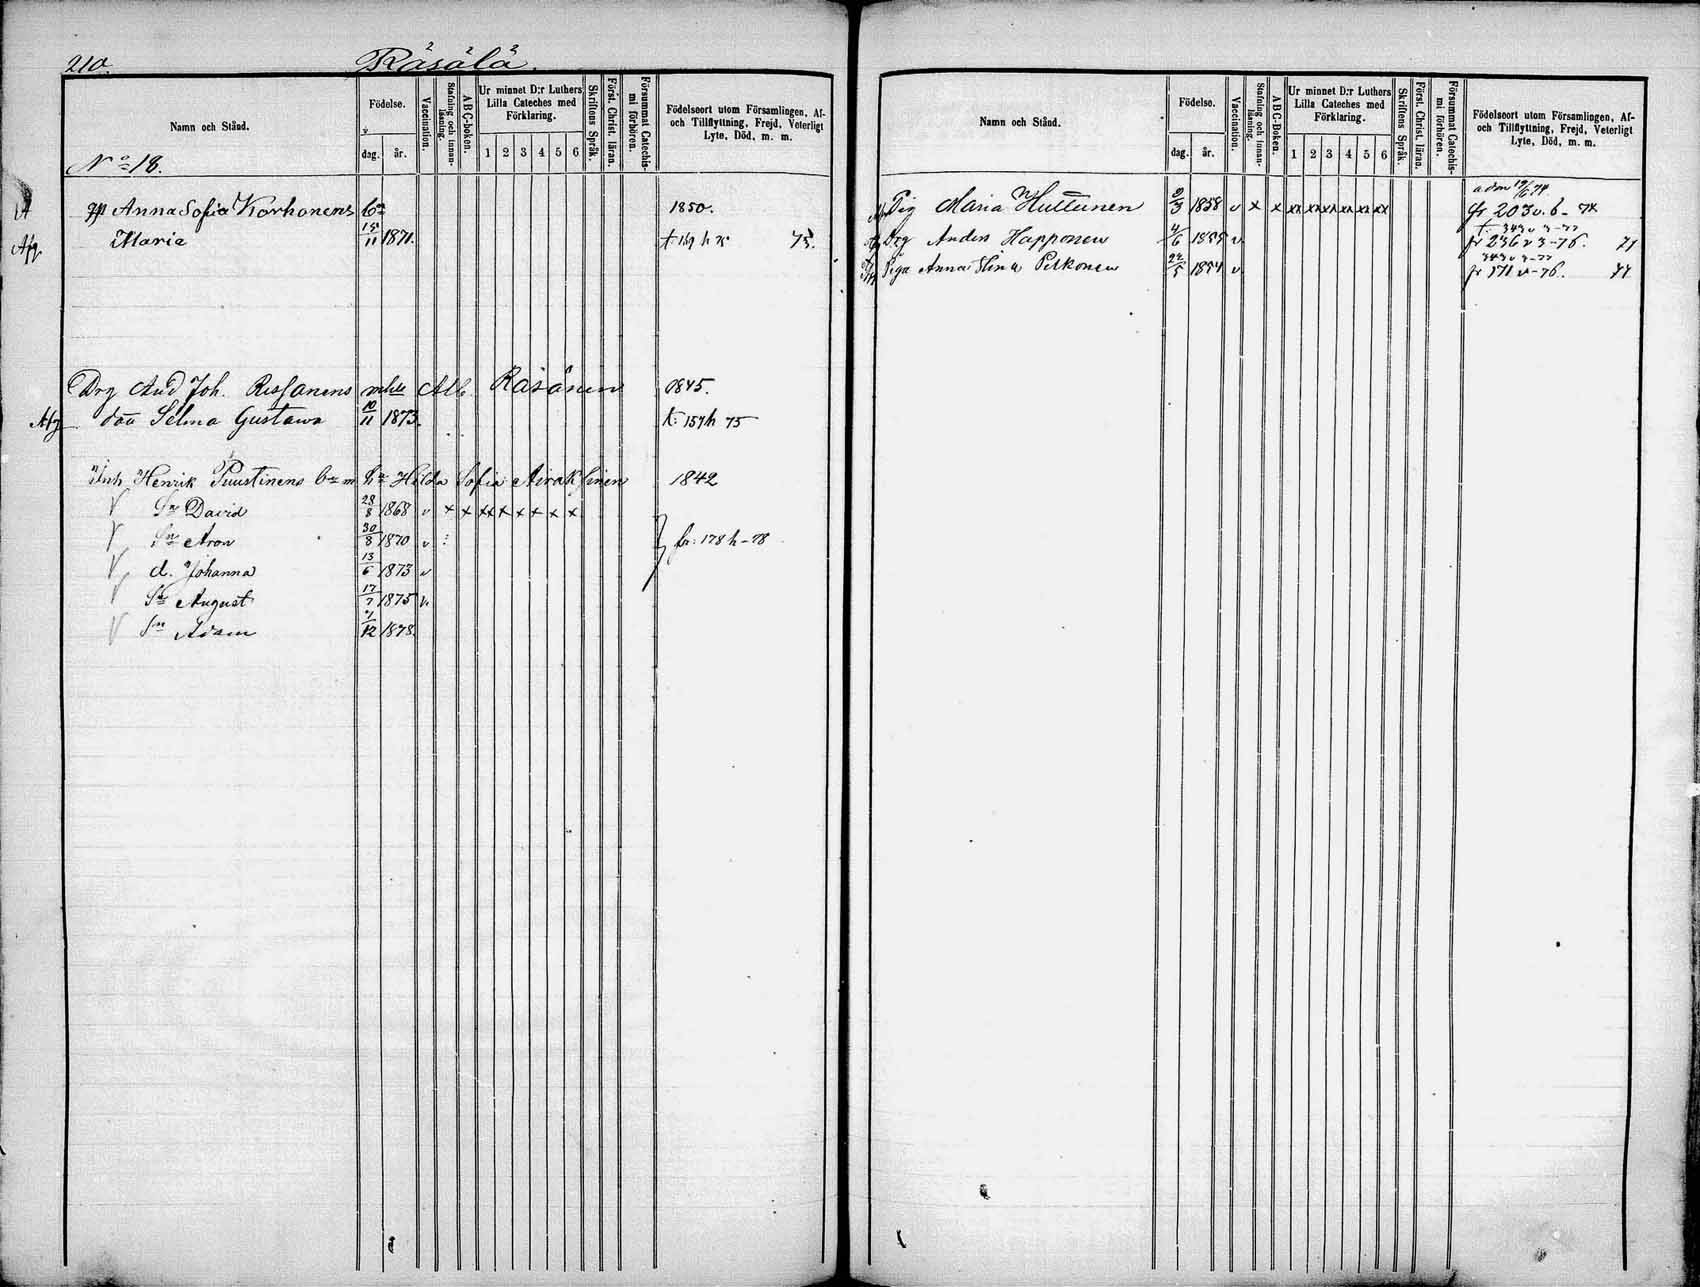 210.
Räsälä.
Namn och Stånd.
Födelse.
dag.
år.
Vaccination.
Stafning och innan-läsning.
ABC-boken.
Ur minnet D:r Luthers Lilla Cateches med Förklaring.
1 2 3 4 5 6
Skriftens Språk.
Förs. Christ. läran.
Försummat Catechis-mi förhören.
Födelseort utom Församlingen, Af- och Tillflyttning, Frejd, Veterligt Lyte, Död, m. m.
No 18.
Anna Sofia Korhonens bn 1850.
Afg Maria 15/11 1871. 75.
Drg And Joh. Rissanens m hu Alb. Räsänen 1845.
Afg dän Selma Gustava 10/11 1873. t. 157 h 75
Inh Henrik Puustinens bn m hu Hilda Sofia Airaksinen 1842
V Sn David 28/8 1868 v x x xx x x x x x
V Sn Aron 30/8 1870 v fr: 178 h - 78
V d. Johanna 13/6 1873 v
V Sn August 17/7 1875 v.
V Sn Adam 9/12 1878.
Namn och Stånd.
Födelse.
dag.
år.
Vaccination.
Stafning och innan-läsning.
ABC-Boken.
Ur minnet D:r Luthers Lilla Cateches med Förklaring.
1 2 3 4 5 6
Skriftens Språk.
Först. Christ. läran.
Försummat Catechis-mi förhören.
Födelseort utom Församlingen, Af- och Tillflyttning, Frejd, Veterligt Lyte, Död, m. m.
Pig Maria Huttunen 2/3 1858 v x x xx xx xx xx xx xx fr 203 v. 6 - 74
t. 343 v 3-77
Drg Anders Happonen 4/6 1855 v. fr 236 v 3-76. 77
343 v 3-77
Piga Anna Stina Pitkonen 22/5 1854 v fr 171 v-76. 77.